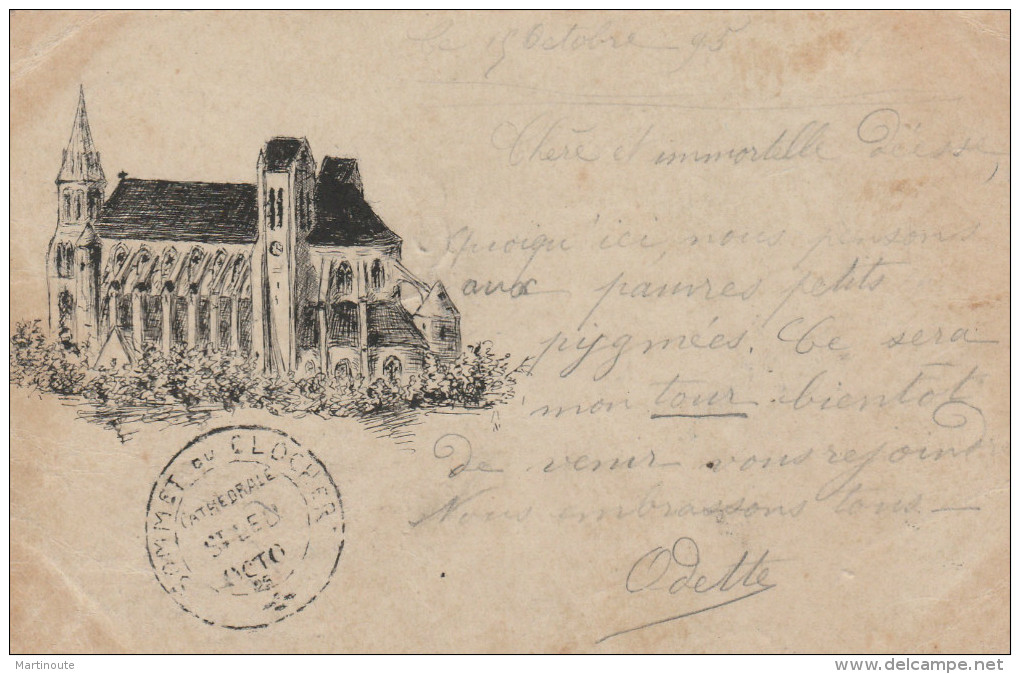 Le 15 Octobre 95
Chère et immortelle déesse,
Quoiqu'ici, nous pensons
aux pauvres petits
pygmées. Ce sera
mon tour bientôt
de venir vous rejoindre
Nous embrassons tous —
Odette
SOMMET DU CLOCHER
CATHEDRALE
ST LEU
OCTO
Martinoute
www.delcampe.net